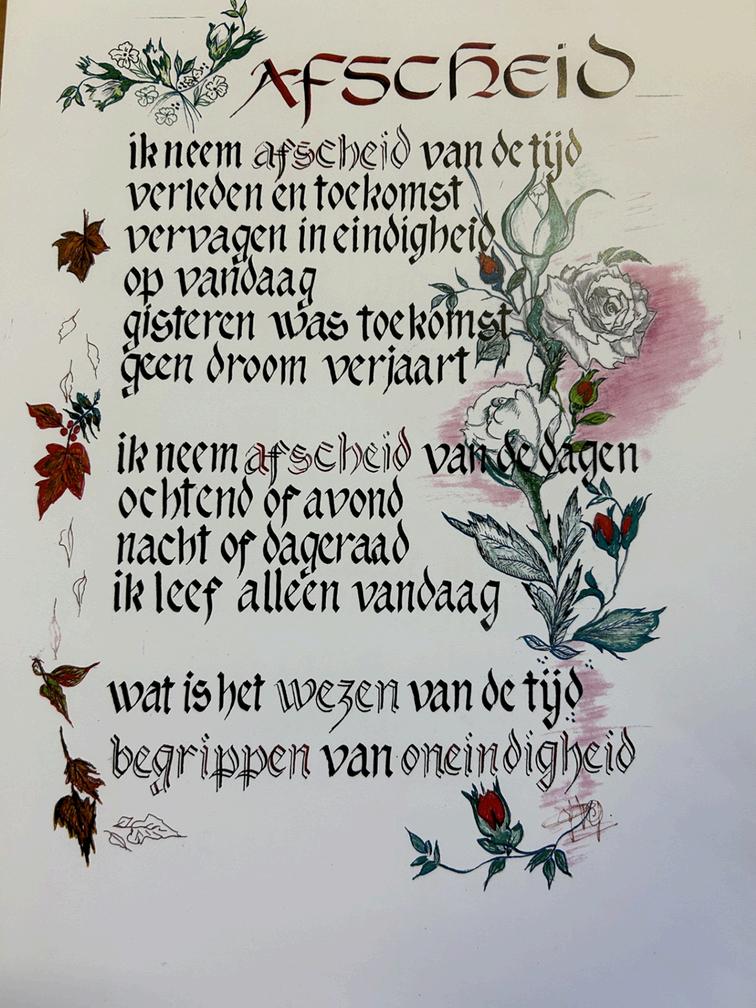 AFSCHEID
ik neem afscheid van de tijd
verleden en toekomst
vervagen in eindigheid
op vandaag
gisteren was toekomst
geen droom verjaart
ik neem afscheid van de dagen
ochtend of avond
nacht of dageraad
ik leef alleen vandaag
wat is het wezen van de tijd
begrippen van oneindigheid